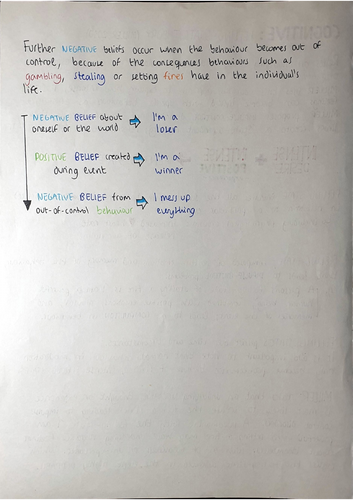 Further NEGATIVE beliefs occur when the behaviour becomes out of
control, because of the consequences behaviours such as
gambling, stealing or setting fires have in the individual's
life.
NEGATIVE BELIEF about oneself or the world → I'm a loser
POSITIVE BELIEF created during event → I'm a winner
NEGATIVE BELIEF from out-of-control behaviour → I mess up everything